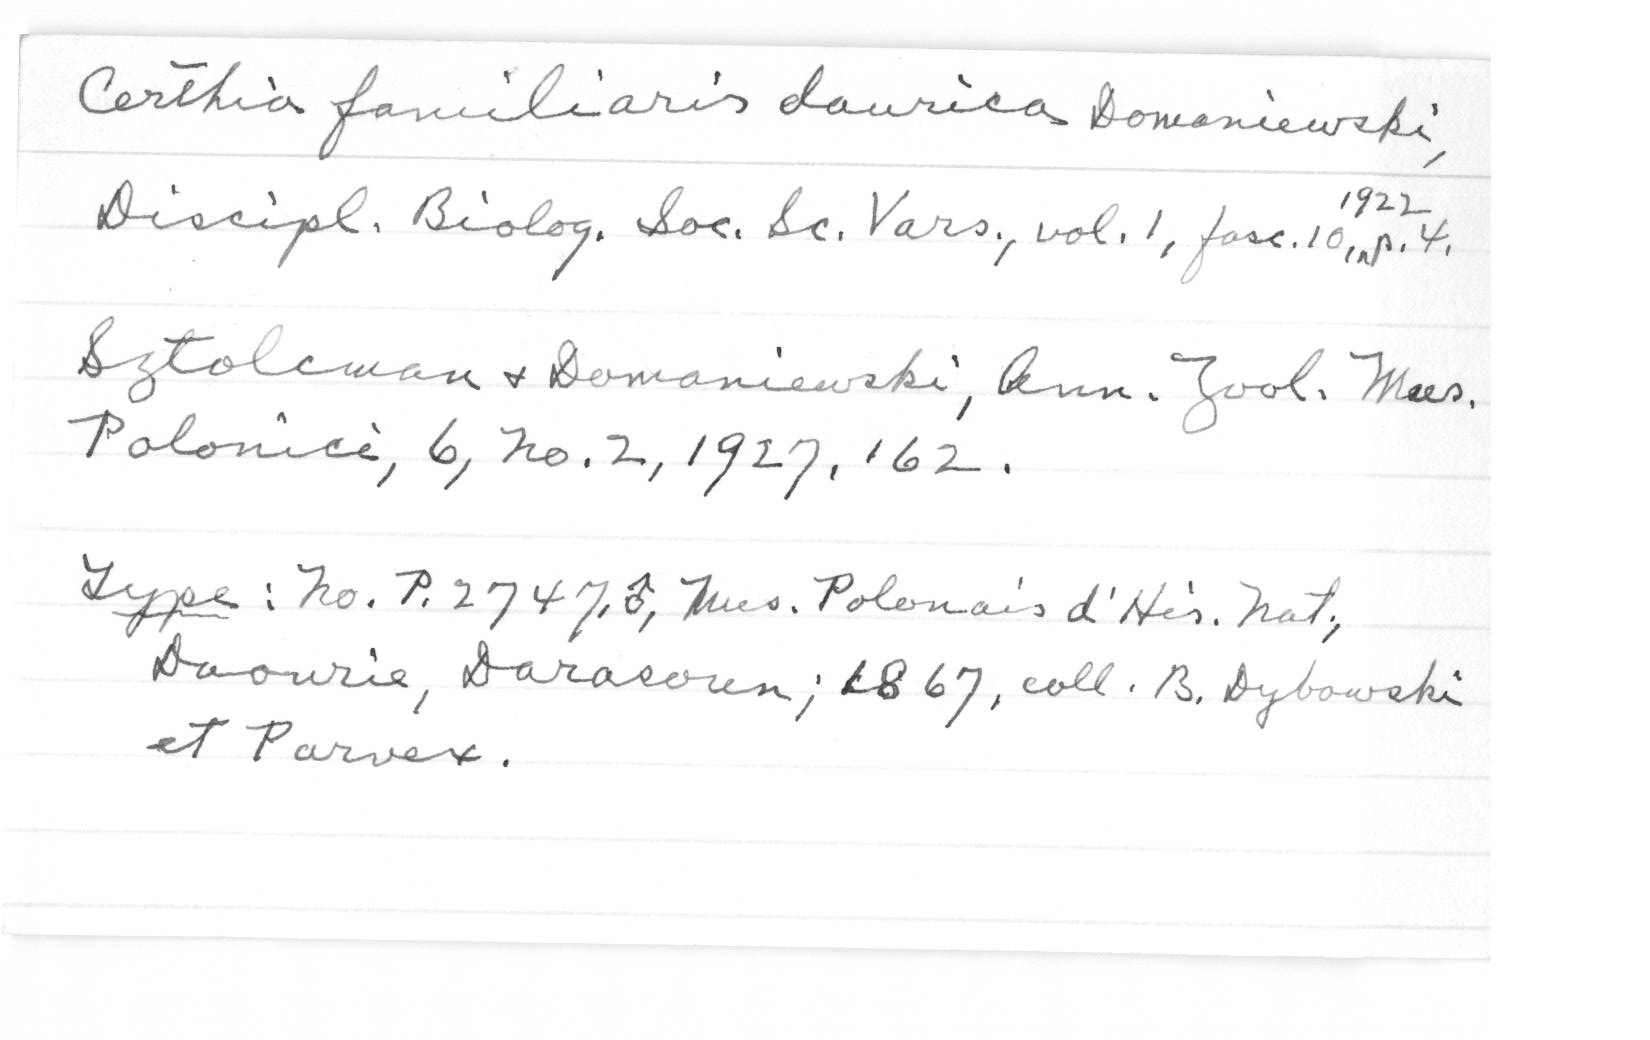 Certhia familiaris daurica Domaniewski,
Discipl. Biolog. Soc. Sc. Vars., vol. 1, fasc. 10, 1922, p. 4.
Sztolcman & Domaniewski, Ann. Zool. Mus.
Polonici, 6, no. 2, 1927, 162.
Type: No. P. 2747, ♂, Mus. Polonais d'His. Nat.,
Daourie, Darasoun; 1867, coll. B. Dybowski
et Parvex.